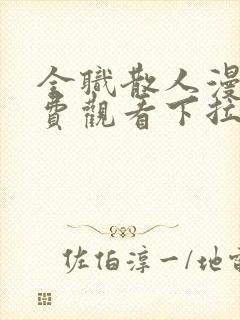 全職散人漫
費觀看下拉
佐伯淳一/地